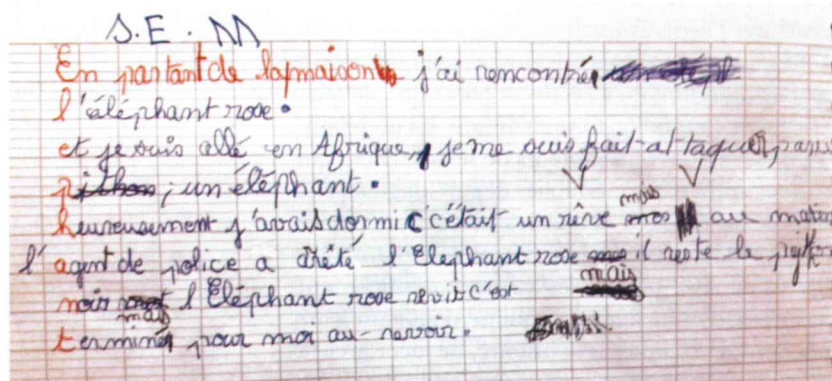 S.E.M
En partant de lapmaison j'ai rencontré
l'éléphant rose.
et je suis allé en Afrique, je me suis fait-at taquer par
un éléphant.
heureusement j'avais dormi c'était un rêve mais au matin
l'agent de police a arêté l'Elephant rose il reste le
noir mais l'Eléphant rose revit c'est mais
terminé pour moi au-revoir.